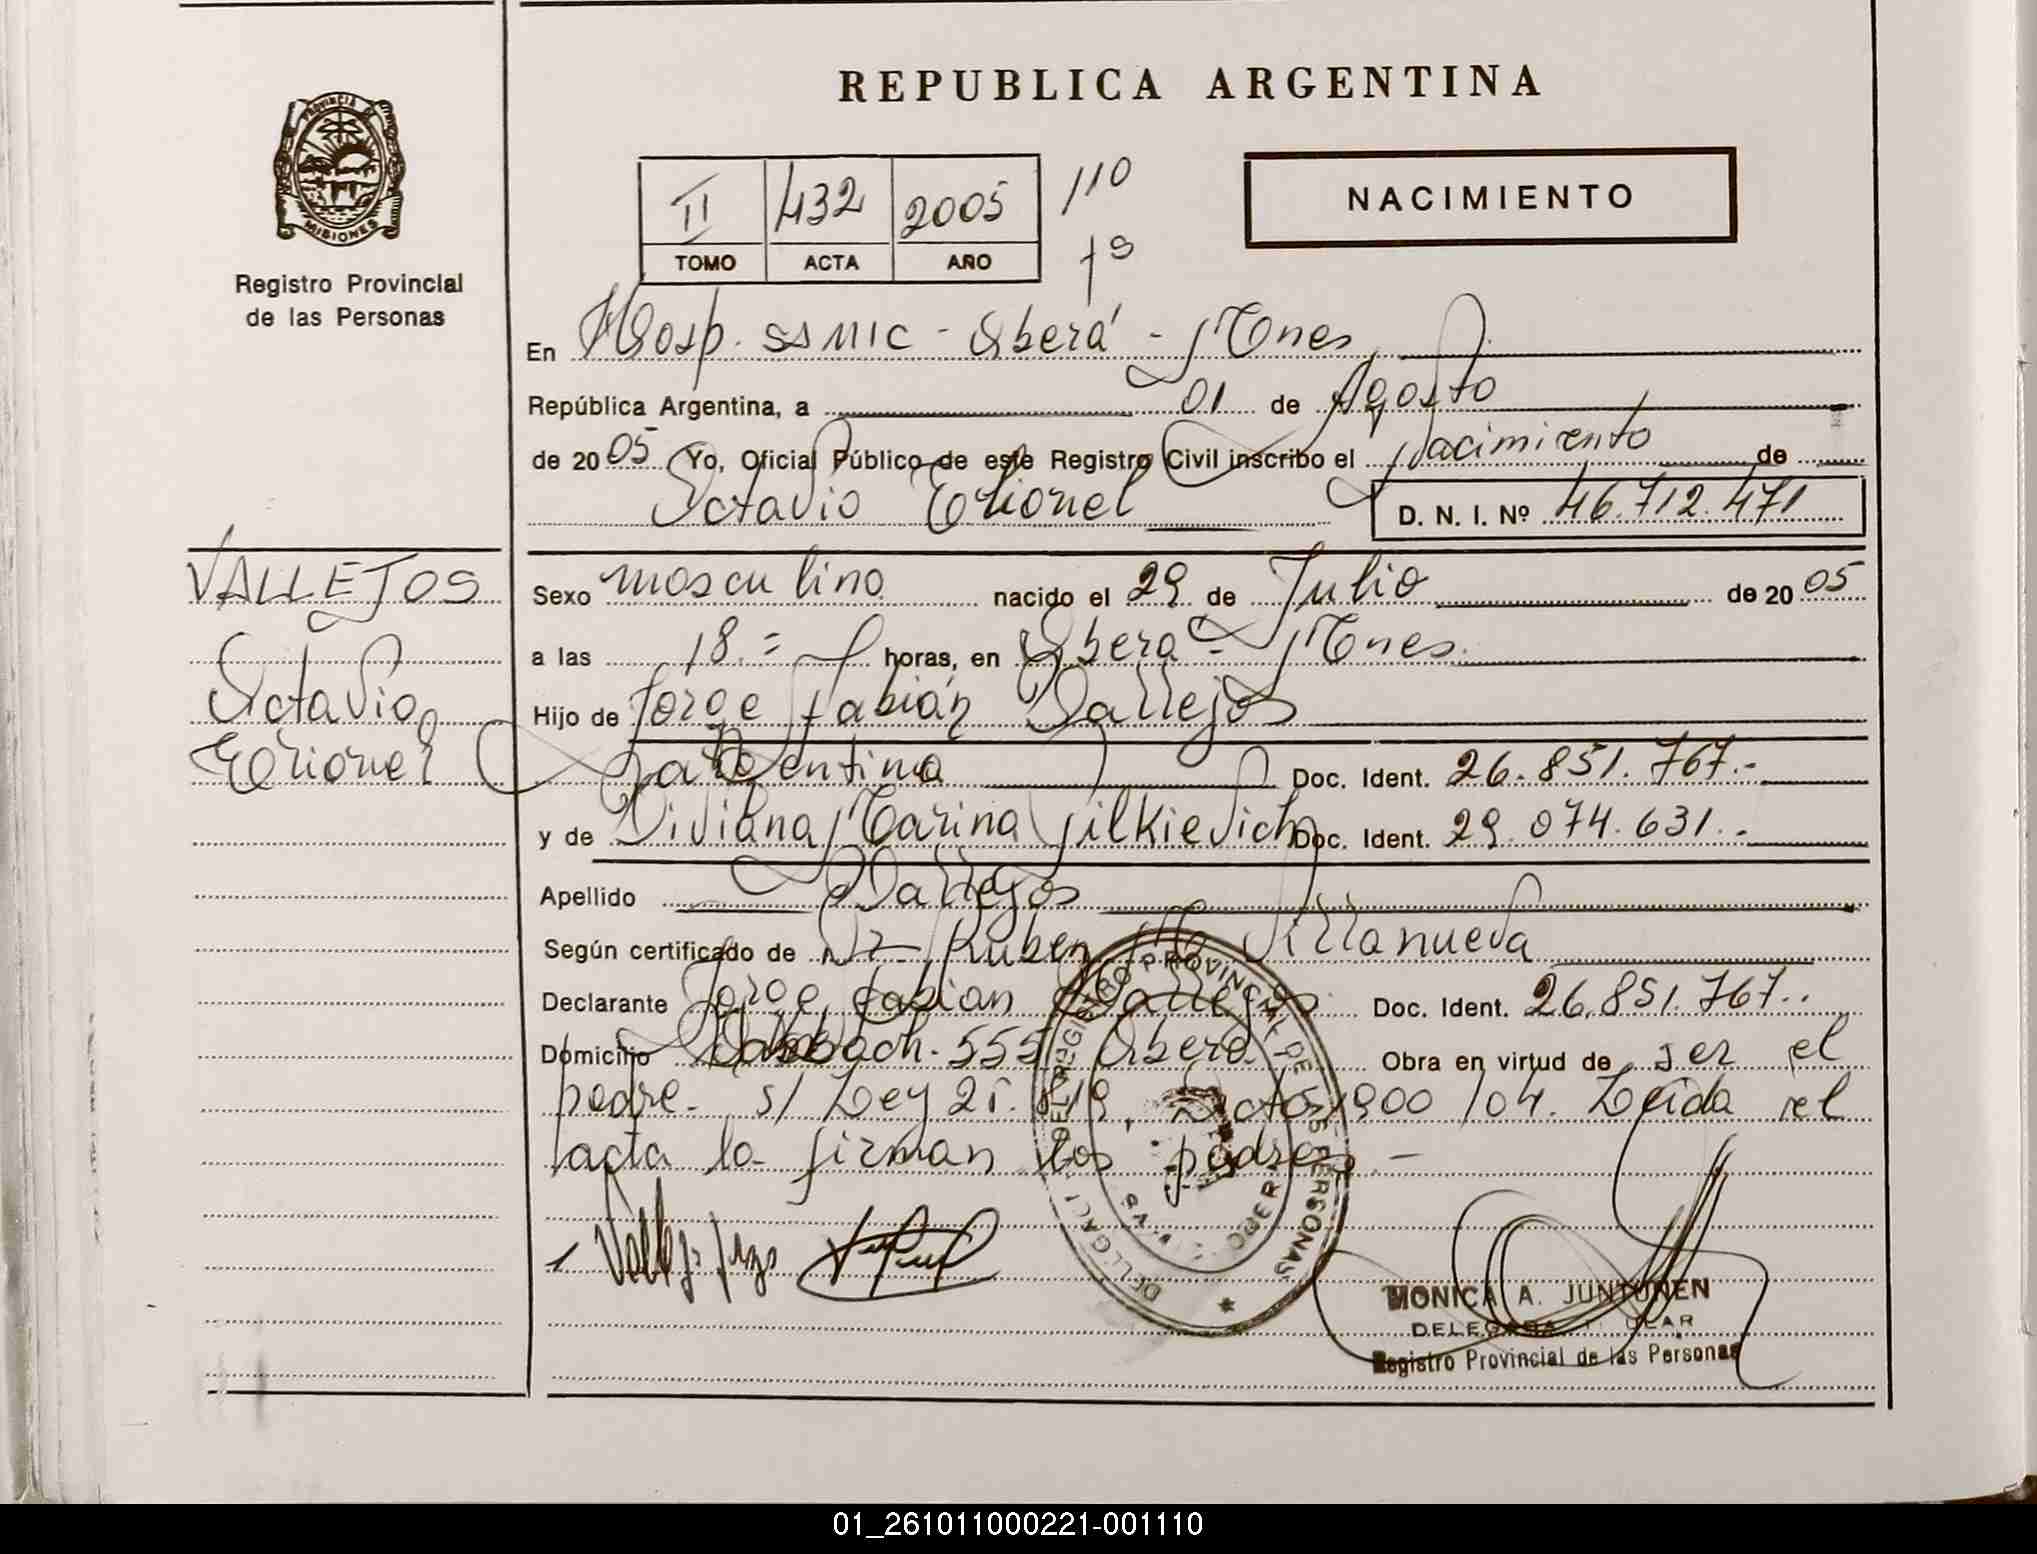 REPUBLICA ARGENTINA
PROVINCIA DE
MISIONES
Registro Provincial
de las Personas
II 432 2005 110
TOMO ACTA AÑO
NACIMIENTO
En Hosp. SAMIC - Oberá - Mnes
República Argentina, a 01 de Agosto
de 2005 Yo, Oficial Público de este Registro Civil inscribo el Nacimiento de
Octavio
D. N. I. Nº 46.712.471
VALLEJOS
Octavio
Sexo masculino nacido el 29 de Julio de 2005
a las 18.= horas, en Oberá - Mnes.
Hijo de Jorge Fabián Vallejos
Argentina Doc. Ident. 26.851.767.-
y de Viviana Marina Doc. Ident. 29.074.631.-
Apellido Vallejos
Según certificado de Dr. Ruben Villanueva
Declarante Jorge Fabian Vallejos Doc. Ident. 26.851.767..
Domicilio 555 Oberá Obra en virtud de ser el
padre. s/ Ley 25.819, Dcto 1900/04. Leida el
acta la firman los padres.-
REGISTRO PROVINCIAL DE LAS PERSONAS
MONICA A. JUNTUNEN
DELEGADA TITULAR
Registro Provincial de las Personas
01_261011000221-001110